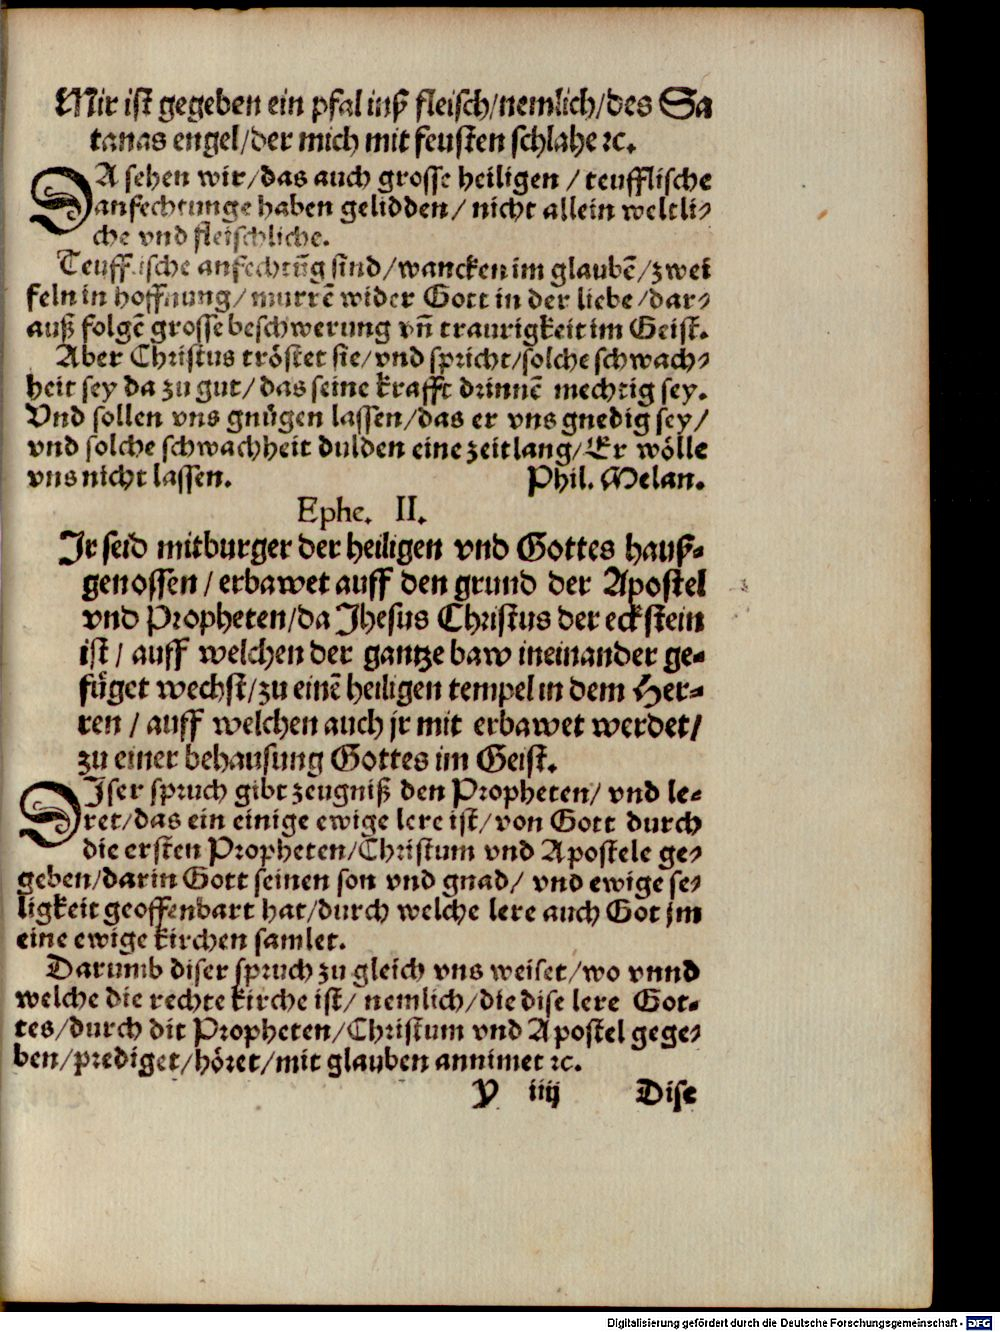 Mir ist gegeben ein pfal inß fleisch/nemlich/des Sa
tanas engel/der mich mit feusten schlahe ꝛc.
DA sehen wir/das auch grosse heiligen / teufflische
anfechtunge haben gelidden/ nicht allein weltli⸗
che vnd fleischliche.
Teufflische anfechtūg sind/wancken im glaubē/zwei
feln in hoffnung/murrē wider Gott in der liebe/dar⸗
auß folgē grosse beschwerung vn̄ traurigkeit im Geist.
Aber Christus tröstet sie/vnd spricht/solche schwach⸗
heit sey da zu gut/das seine krafft drinnē mechtig sey.
Vnd sollen vns gnügen lassen/das er vns gnedig sey/
vnd solche schwachheit dulden eine zeitlang/Er wölle
vns nicht lassen. Phil. Melan.
Ephe. II.
Jr seid mitburger der heiligen vnd Gottes hauß⸗
genossen / erbawet auff den grund der Apostel
vnd Propheten/da Jhesus Christus der eckstein
ist / auff welchen der gantze baw ineinander ge⸗
füget wechst/zu einē heiligen tempel in dem Her⸗
ren / auff welchen auch jr mit erbawet werdet/
zu einer behausung Gottes im Geist.
DJser spruch gibt zeugniß den Propheten/ vnd le⸗
ret/das ein einige ewige lere ist/von Gott durch
die ersten Propheten/Christum vnd Apostele ge⸗
geben/darin Gott seinen son vnd gnad/ vnd ewige se⸗
ligkeit geoffenbart hat/durch welche lere auch Got jm
eine ewige kirchen samlet.
Darumb diser spruch zu gleich vns weiset/wo vnnd
welche die rechte kirche ist/ nemlich/die dise lere Got⸗
tes/durch die Propheten/Christum vnd Apostel gege⸗
ben/prediget/höret/mit glauben annimet ꝛc.
Y iiij Dise
Digitalisierung gefördert durch die Deutsche Forschungsgemeinschaft - DFG